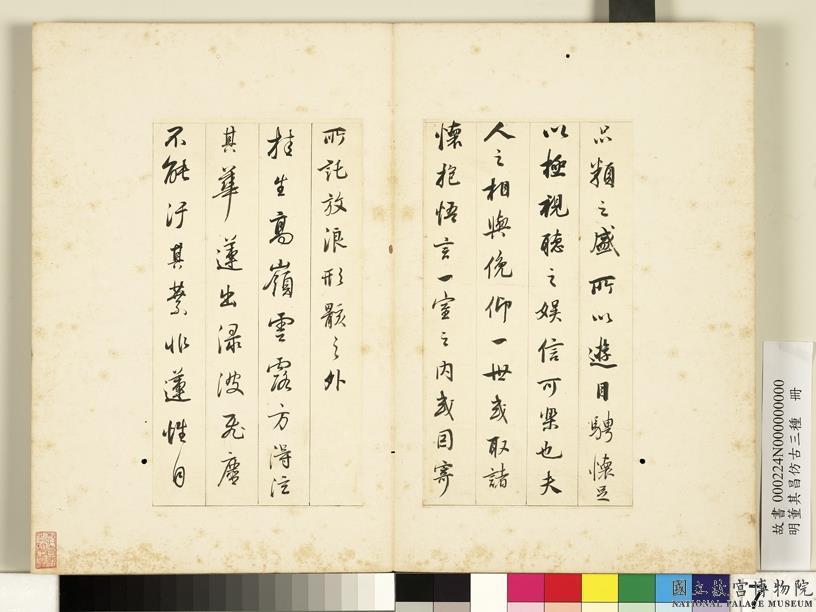 品類之盛所以遊目騁懷足
以極視聽之娛信可樂也夫
人之相與俛仰一世或取諸
懷抱悟言一室之內或因寄
所託放浪形骸之外
桂生高嶺雲露方得泫
其華蓮出淥波飛塵
不能汙其葉非蓮性自
故書 000224N000000000
明董其昌仿古三種 冊
國立故宮博物院
NATIONAL PALACE MUSEUM